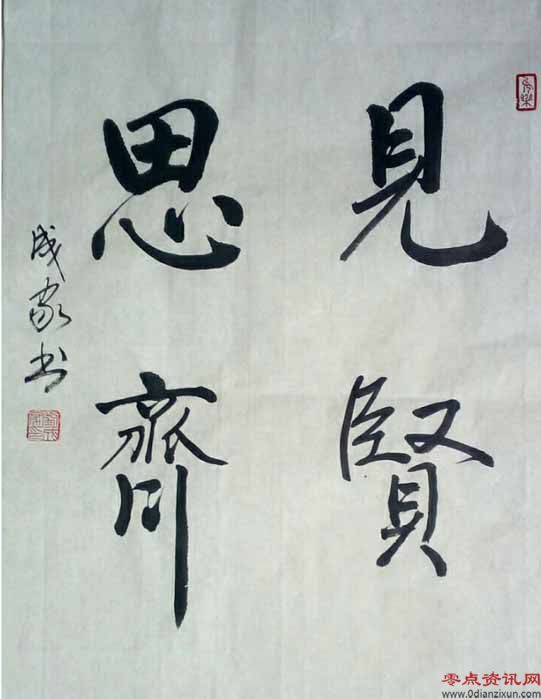 見賢
思齊
成家书
零点资讯网
www.0dianzixun.com